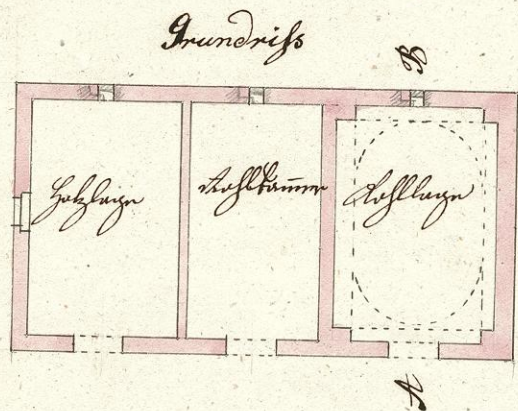 Grundriss
B
Holzlage
Rohkamer
Kohllage
A